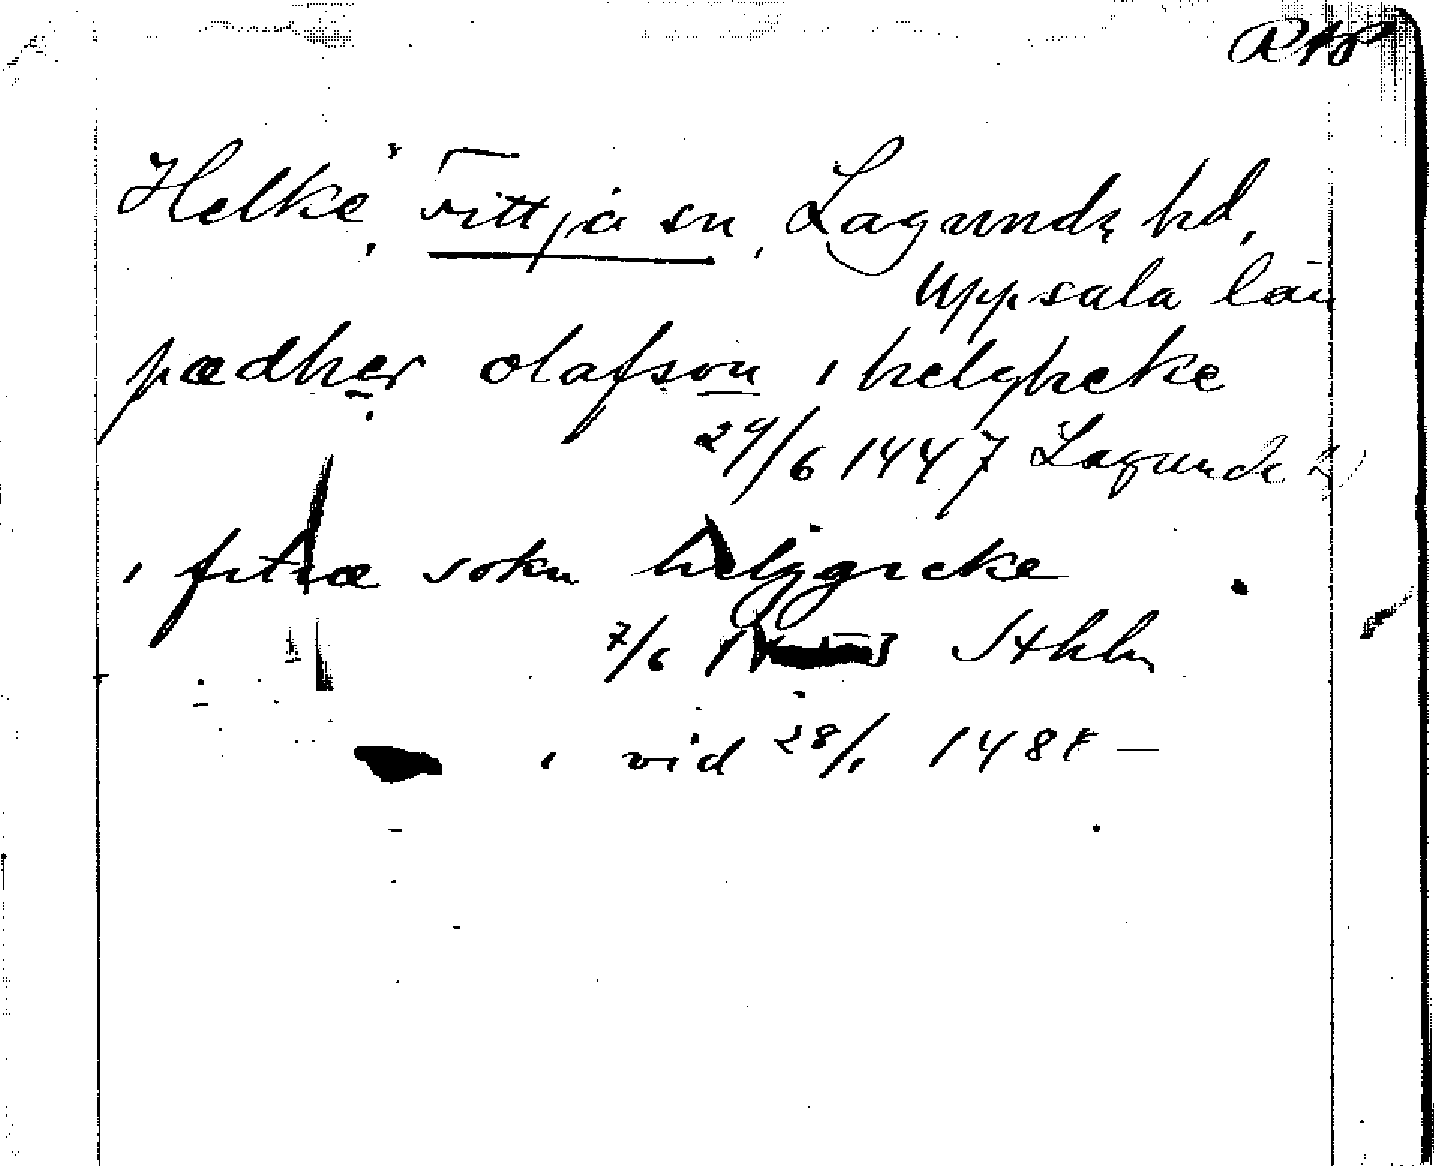 RAP
Helke, Fittja sn, Lagunda hd,
Uppsala län
pædher olafson i helgheke
29/6 1447 Lagunda
i fitiæ sokn helggneke
7/6 Sthlm
i vid 28/1 148